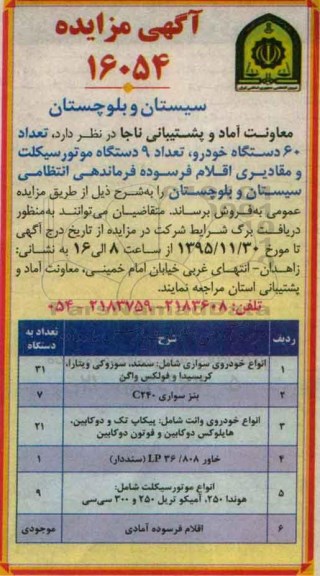 آگهی مزایده
۱۶۰۵۴
سیستان و بلوچستان
معاونت آماد و پشتیبانی ناجا در نظر دارد، تعداد
۶۰ دستگاه خودرو، تعداد ۹ دستگاه موتورسیکلت
و مقادیری اقلام فرسوده فرماندهی انتظامی
سیستان و بلوچستان را به‌شرح ذیل از طریق مزایده
عمومی به‌فروش برساند. متقاضیان می‌توانند به‌منظور
دریافت برگ شرایط شرکت در مزایده از تاریخ درج آگهی
تا مورخ ۱۳۹۵/۱۱/۳۰ از ساعت ۸ الی ۱۶ به نشانی:
زاهدان- انتهای غربی خیابان امام خمینی، معاونت آماد و
پشتیبانی استان مراجعه نمایند.
تلفن: ۲۱۸۳۶۰۸- ۲۱۸۳۷۵۹- ۰۵۴
ردیف شرح تعداد به دستگاه
۱ انواع خودروی سواری شامل: سمند، سوزوکی ویتارا، ۳۱
کریسیدا و فولکس واگن
۲ بنز سواری C۲۴۰ ۷
۳ انواع خودروی وانت شامل: پیکاپ تک و دوکابین، ۲۱
هایلوکس دوکابین و فوتون دوکابین
۴ خاور ۸۰۸/ LP ۳۶ (سنددار) ۱
۵ انواع موتورسیکلت شامل: ۹
هوندا ۲۵۰، آمیکو تریل ۲۵۰ و ۳۰۰ سی‌سی
۶ اقلام فرسوده آمادی موجودی